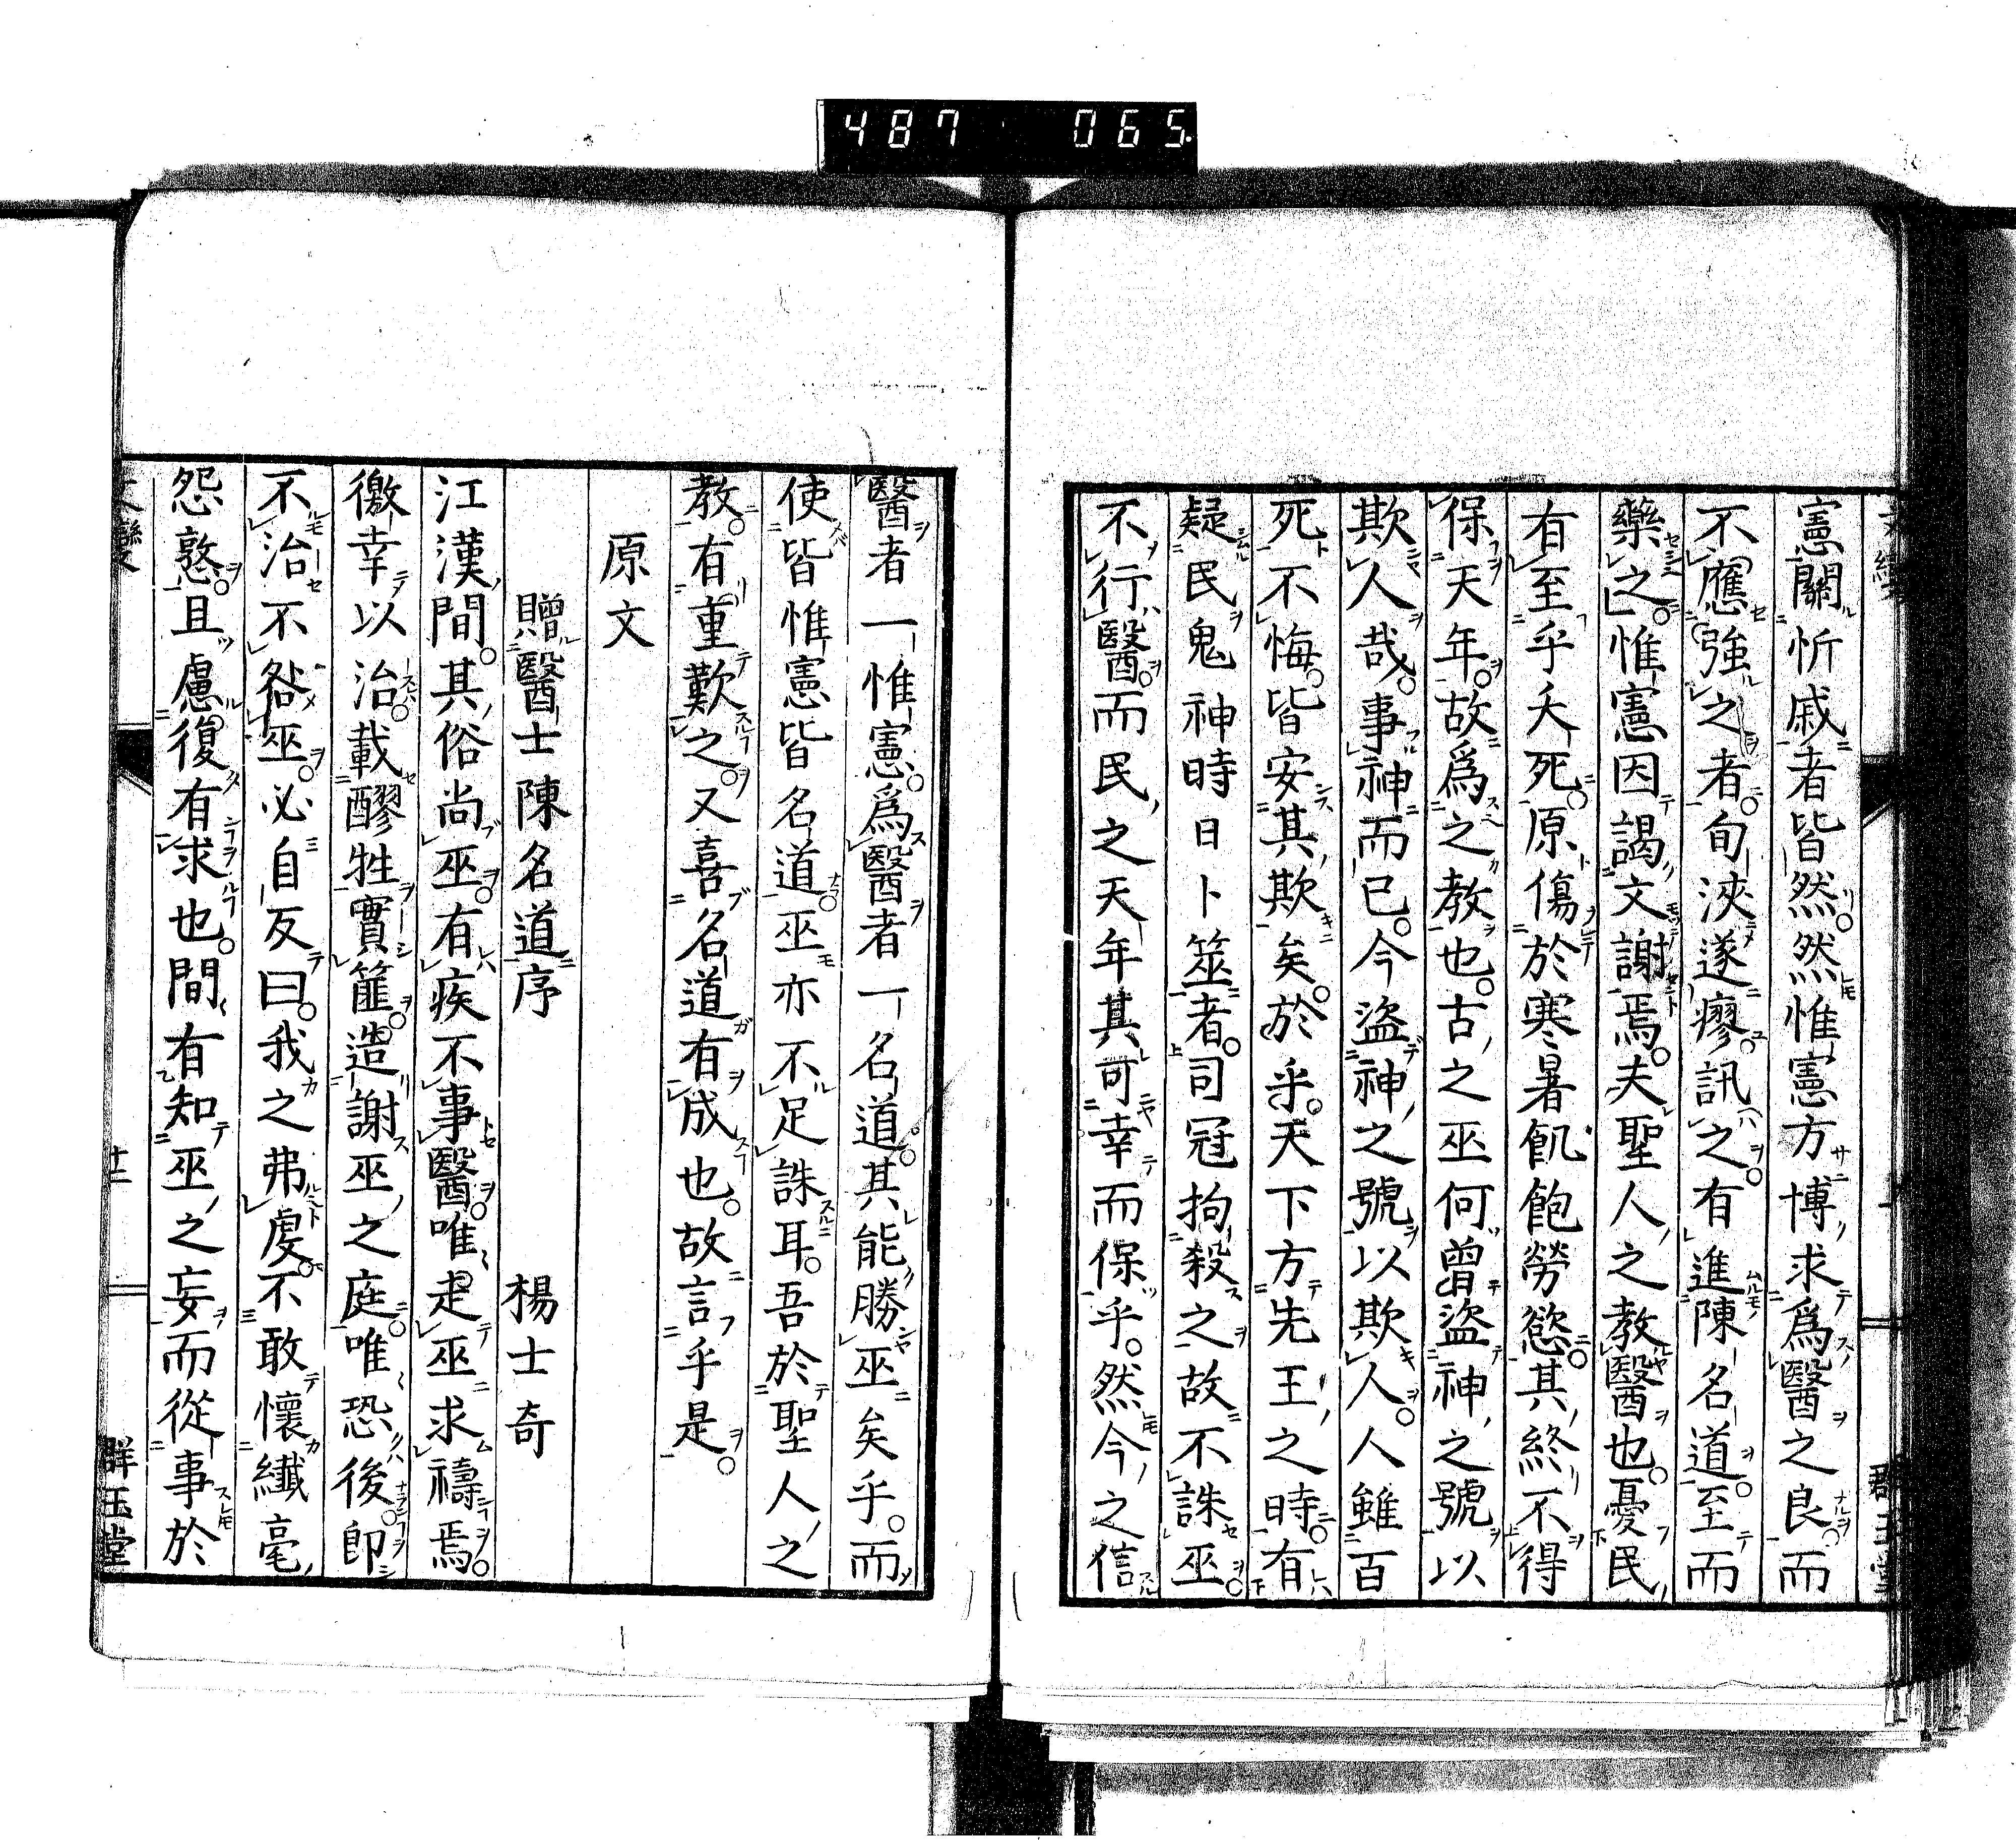 487 065
憲關忻戚者皆然然惟憲方博求爲醫之良而
不應強之者旬浹遂瘳訊之有進陳名道至而
藥之惟憲因謁文謝焉夫聖人之教醫也憂民
有至乎夭死原傷於寒暑飢飽勞慾其終不得
保天年故爲之教也古之巫何曾盜神之號以
欺人哉事神而已今盜神之號以欺人人雖百
死不悔皆安其欺矣於乎天下方先王之時有
疑民鬼神時日卜筮者司冠拘殺之故不誅巫
不行醫而民之天年其可幸而保乎然今之信
醫者一惟憲爲醫者一名道其能勝巫矣乎而
使皆惟憲皆名道巫亦不足誅耳吾於聖人之
教有重歎之又喜名道有成也故言乎是
原文
贈醫士陳名道序 楊士奇
江漢間其俗尚巫有疾不事醫唯走巫求禱焉
徼幸以治載醪牲實篚造謝巫之庭唯恐後卽
不治不咎巫必自反曰我之弗虔不敢懷纖毫
怨憝且慮復有求也間有知巫之妄而從事於
十二
群玉堂